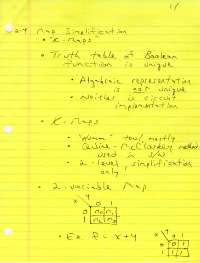 2-4 Map Simplification
• "K-Maps"
• Truth table of Boolean
function is unique
• Algebraic representation
is not unique
• Neither is circuit
implementation
• K-Maps
• tool, mostly
• Quine-McCluskey method
used in
• 2-level simplification
only!
• 2-variable Map
x y 0 1
0 m0 m1
1 m2 m3
• Ex. F = x+y
x y 0 1
0 1
1 1 1